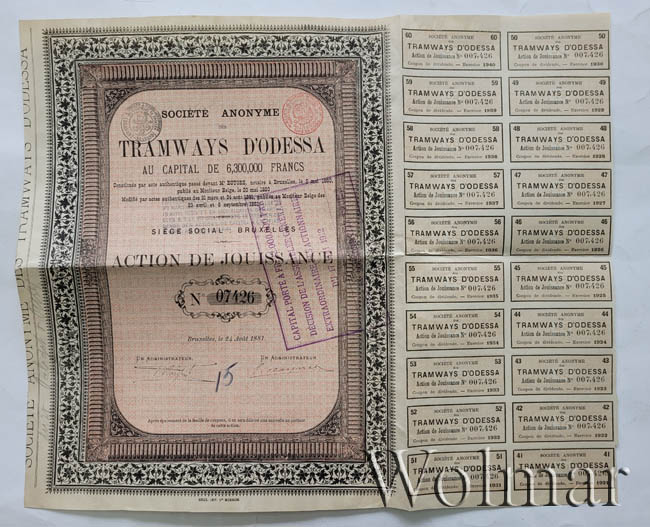 SOCIÉTÉ ANONYME DES TRAMWAYS D'ODESSA
SOCIÉTÉ ANONYME
DES
TRAMWAYS D'ODESSA
AU CAPITAL DE 6,300,000 FRANCS
publiés au Moniteur Belge, le 22 mai 1880
SIÈGE SOCIAL BRUXELLES
ACTION DE JOUISSANCE
N° 07426
Bruxelles, le 24 Août 1881.
UN ADMINISTRATEUR, UN ADMINISTRATEUR
15
CAPITAL PORTÉ A
DÉCISION DE L'ASSEMBLÉE
EXTRAORDINAIRE ACTIONNAIRES
de cette action.
60 SOCIÉTÉ ANONYME 60
DES
TRAMWAYS D'ODESSA
Action de Jouissance N° 007.426
Coupon de dividende. - Exercice 1940
50 SOCIÉTÉ ANONYME 50
DES
TRAMWAYS D'ODESSA
Action de Jouissance N° 007.426
Coupon de dividende. - Exercice 1930
59 SOCIÉTÉ ANONYME 59
DES
TRAMWAYS D'ODESSA
Action de Jouissance N° 007.426
Coupon de dividende. - Exercice 1939
49 SOCIÉTÉ ANONYME 49
DES
TRAMWAYS D'ODESSA
Action de Jouissance N° 007.426
Coupon de dividende. - Exercice 1929
58 SOCIÉTÉ ANONYME 58
DES
TRAMWAYS D'ODESSA
Action de Jouissance N° 007.426
Coupon de dividende. - Exercice 1938
48 SOCIÉTÉ ANONYME 48
DES
TRAMWAYS D'ODESSA
Action de Jouissance N° 007.426
Coupon de dividende. - Exercice 1928
57 SOCIÉTÉ ANONYME 57
DES
TRAMWAYS D'ODESSA
Action de Jouissance N° 007.426
Coupon de dividende. - Exercice 1937
47 SOCIÉTÉ ANONYME 47
DES
TRAMWAYS D'ODESSA
Action de Jouissance N° 007.426
Coupon de dividende. - Exercice 1927
56 SOCIÉTÉ ANONYME 56
DES
TRAMWAYS D'ODESSA
Action de Jouissance N° 007.426
Coupon de dividende. - Exercice 1936
46 SOCIÉTÉ ANONYME 46
DES
TRAMWAYS D'ODESSA
Action de Jouissance N° 007.426
Coupon de dividende. - Exercice 1926
55 SOCIÉTÉ ANONYME 55
DES
TRAMWAYS D'ODESSA
Action de Jouissance N° 007.426
Coupon de dividende. - Exercice 1935
45 SOCIÉTÉ ANONYME 45
DES
TRAMWAYS D'ODESSA
Action de Jouissance N° 007.426
Coupon de dividende. - Exercice 1925
54 SOCIÉTÉ ANONYME 54
DES
TRAMWAYS D'ODESSA
Action de Jouissance N° 007.426
Coupon de dividende. - Exercice 1934
44 SOCIÉTÉ ANONYME 44
DES
TRAMWAYS D'ODESSA
Action de Jouissance N° 007.426
Coupon de dividende. - Exercice 1924
53 SOCIÉTÉ ANONYME 53
DES
TRAMWAYS D'ODESSA
Action de Jouissance N° 007.426
Coupon de dividende. - Exercice 1933
43 SOCIÉTÉ ANONYME 43
DES
TRAMWAYS D'ODESSA
Action de Jouissance N° 007.426
Coupon de dividende. - Exercice 1923
52 SOCIÉTÉ ANONYME 52
DES
TRAMWAYS D'ODESSA
Action de Jouissance N° 007.426
Coupon de dividende. - Exercice 1932
42 SOCIÉTÉ ANONYME 42
DES
TRAMWAYS D'ODESSA
Action de Jouissance N° 007.426
Coupon de dividende. - Exercice 1922
51 SOCIÉTÉ ANONYME 51
TRAMWAYS D'ODESSA
Action de Jouissance N° 007.426
Coupon de dividende. - Exercice 1931
41 SOCIÉTÉ ANONYME 41
TRAMWAYS D'ODESSA
Action de Jouissance N° 007.426
Wolmar